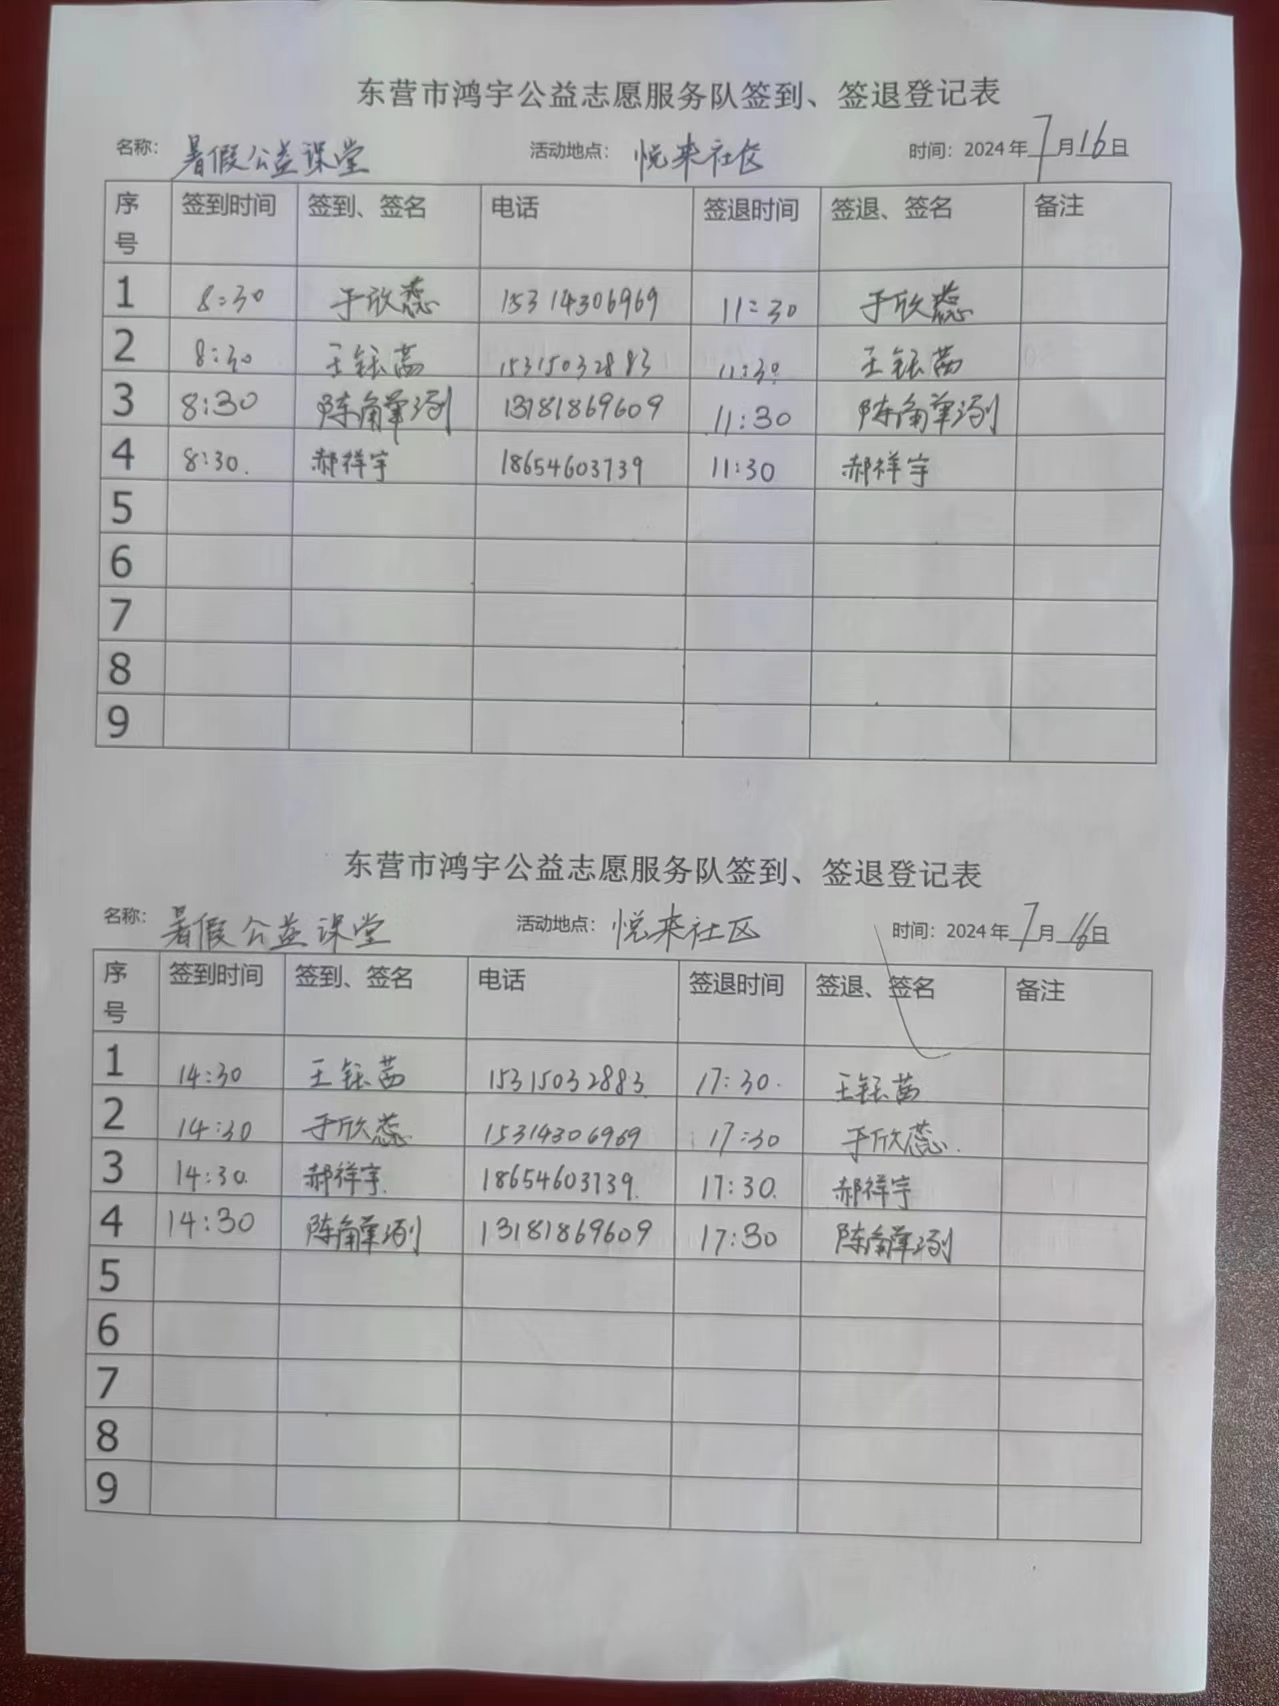 东营市鸿宇公益志愿服务队签到、签退登记表
名称：暑假公益课堂 活动地点：悦来社区 时间：2024年7月16日
序号 签到时间 签到、签名 电话 签退时间 签退、签名 备注
1 8:30 于欣蕊 15314306969 11:30 于欣蕊
2 8:30 王钰茜 15315032883 11:30 王钰茜
3 8:30 陈 13181869609 11:30 陈
4 8:30. 郝祥宇 18654603739 11:30 郝祥宇
5
6
7
8
9
东营市鸿宇公益志愿服务队签到、签退登记表
名称：暑假公益课堂 活动地点：悦来社区 时间：2024年7月16日
序号 签到时间 签到、签名 电话 签退时间 签退、签名 备注
1 14:30 王钰茜 15315032883 17:30. 王钰茜
2 14:30 于欣蕊 15314306969 17:30 于欣蕊.
3 14:30. 郝祥宇. 18654603739. 17:30. 郝祥宇
4 14:30 陈 13181869609 17:30 陈
5
6
7
8
9